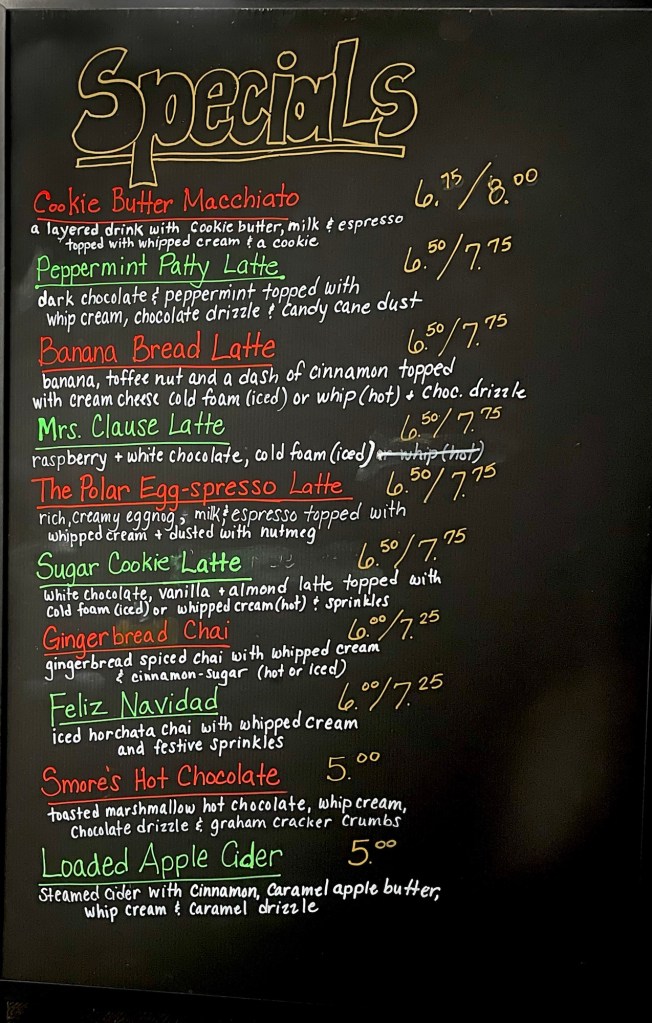 Specials
Cookie Butter Macchiato 6.75/8.00
a layered drink with Cookie butter, milk & espresso
topped with whipped cream & a cookie
Peppermint Patty Latte 6.50/7.75
dark chocolate & peppermint topped with
whip cream, chocolate drizzle & candy cane dust
Banana Bread Latte 6.50/7.75
banana, toffee nut and a dash of cinnamon topped
with cream cheese cold foam (iced) or whip (hot) + choc. drizzle
Mrs. Clause Latte 6.50/7.75
raspberry + white chocolate, cold foam (iced) or whip (hot)
The Polar Egg-spresso Latte 6.50/7.75
rich, creamy eggnog, milk & espresso topped with
whipped cream + dusted with nutmeg
Sugar Cookie Latte 6.50/7.75
white chocolate, vanilla + almond latte topped with
cold foam (iced) or whipped cream (hot) & sprinkles
Gingerbread Chai 6.00/7.25
gingerbread spiced chai with whipped cream
& cinnamon-sugar (hot or Iced)
Feliz Navidad 6.00/7.25
iced horchata chai with whipped cream
and festive sprinkles
Smore's Hot Chocolate 5.00
toasted marshmallow hot chocolate, whip cream,
Chocolate drizzle & graham cracker crumbs
Loaded Apple Cider 5.00
Steamed Cider with Cinnamon, Caramel apple butter,
whip cream & Caramel drizzle